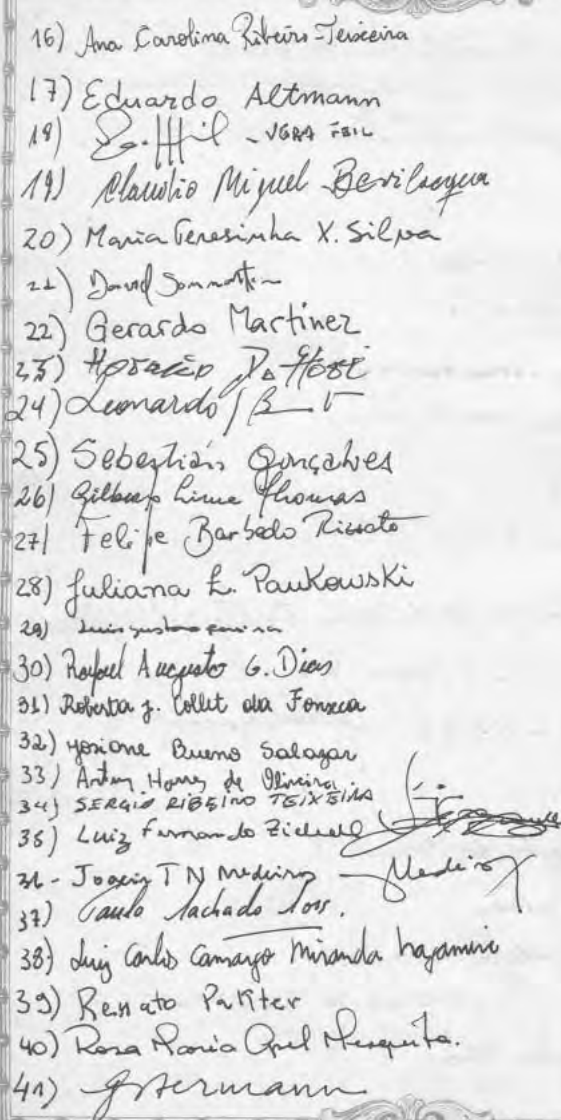 16) Ana Carolina Ribeiro-Teixeira
17) Eduardo Altmann
18) - VERA FEIL
19) Claudio Miguel Bevilacqua
20) Maria Teresinha X. Silva
21) David
22) Gerardo Martinez
23) Horacio
24) Leonardo
25) Sebastián Gonçalves
26) Gilberto Lima Thomas
27) Felipe Barbedo Rizzato
28) Juliana L. Paukowski
29) Luis Gustavo
30) Rafael Augusto G. Dias
31) Roberta J. Collet da Fonseca
32) Josiane Bueno Salazar
33) Artur Hornes de Oliveira
34) SERGIO RIBEIRO TEIXEIRA
35) Luiz Fernando
36 - TN Medeiros - Medeiros
37) Paulo Machado Mors.
38) Luiz Carlos Camargo Miranda
39) Renato Pakter
40) Rosa Maria Mesquita.
41)